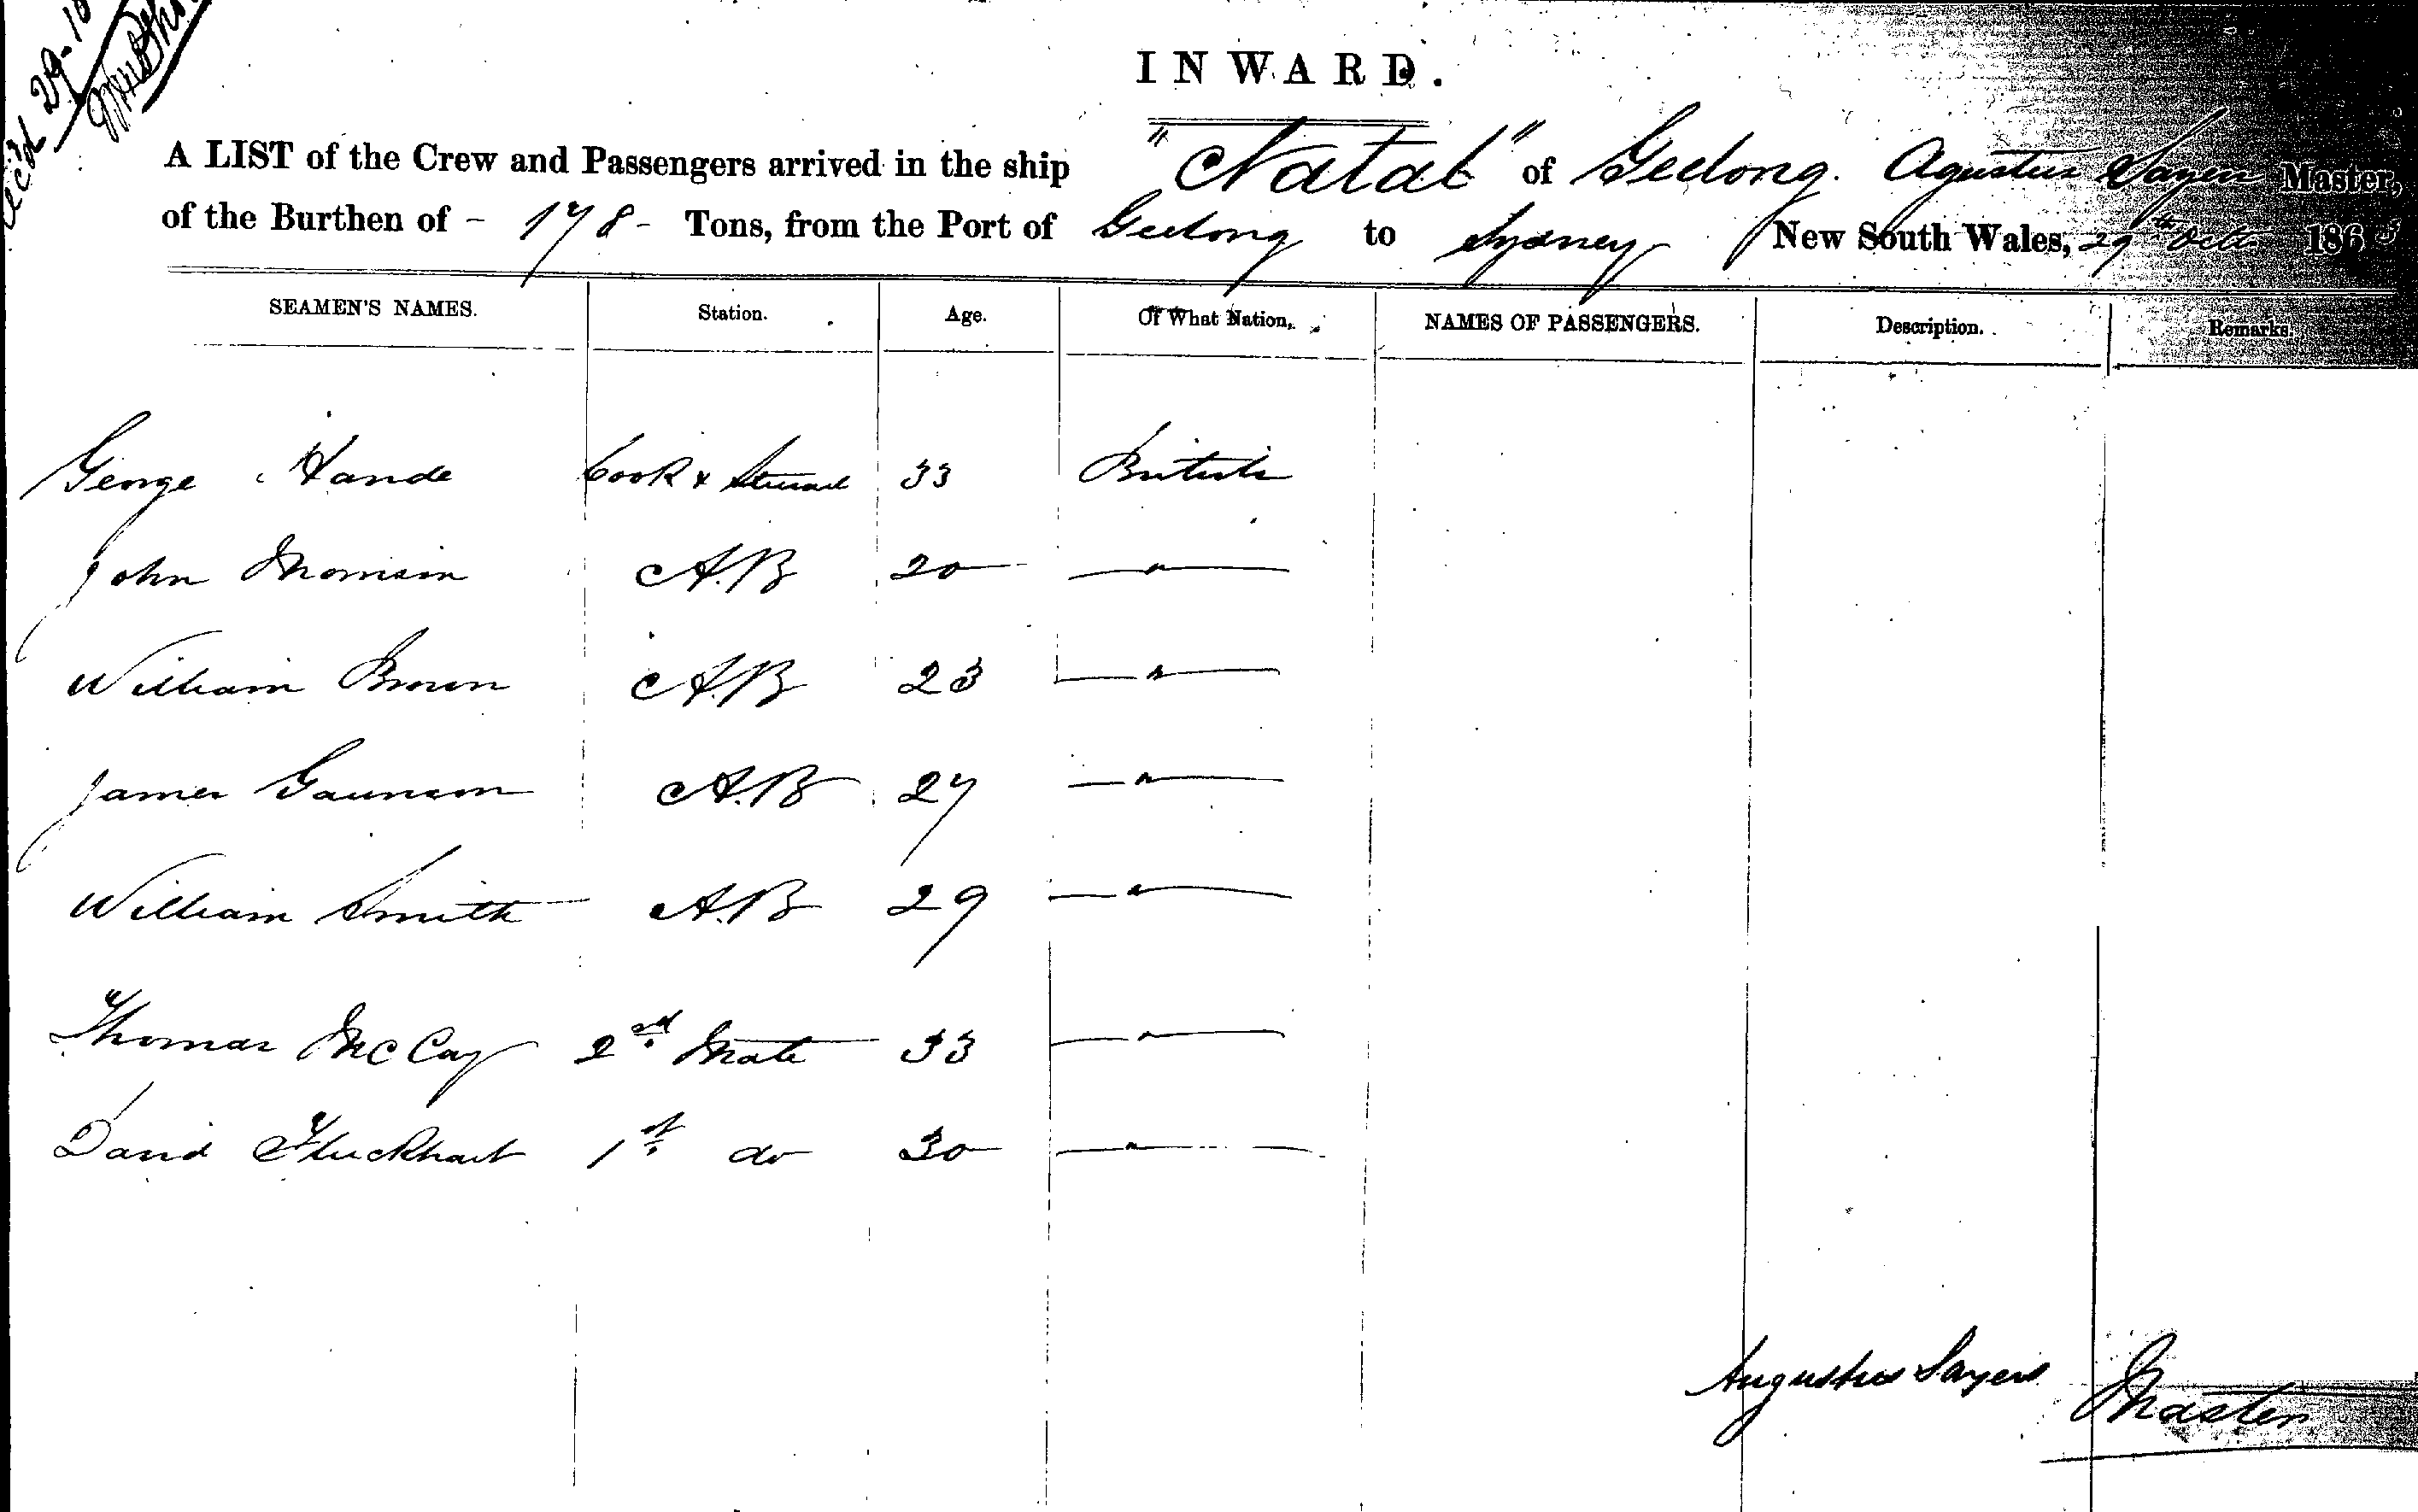 Recd 29-10
INWARD.
A LIST of the Crew and Passengers arrived in the ship "Natal" of Geelong. Agustus Sayers Master,
of the Burthen of - 178 - Tons, from the Port of Geelong to Sydney New South Wales, 29th Octr 1863
SEAMEN'S NAMES. Station. Age. Of What Nation. NAMES OF PASSENGERS. Description. Remarks.
George Hande Cook & Steward 33 British
John Morrison A.B 20 — " —
William Brown A.B 23 — " —
James Gaunson A.B 27 — " —
William Smith A.B 29 — " —
Thomas McCay 2nd Mate 33 — " —
David Fluckhart 1st do 30 — " —
Augustus Sayers Master